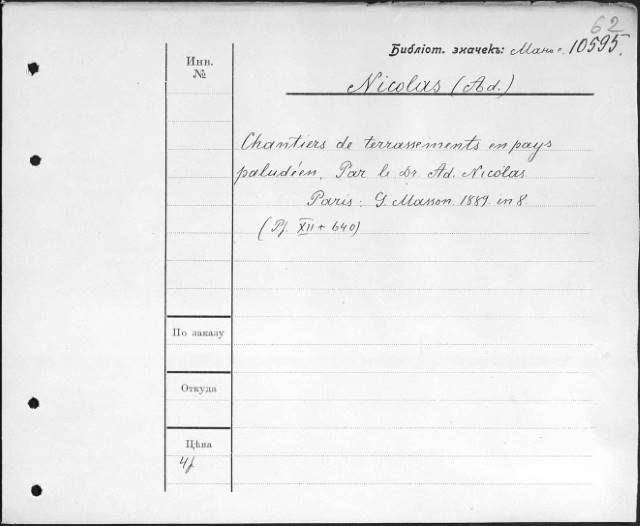 62
Библіот. значекъ: 10595.
Инв.
№
Nicolas (Ad.)
Chantiers de terrassements en pays
paludéen. Par le Dr. Ad. Nicolas
Paris: G. Masson. 1889. in 8.
(Pf. XII + 640)
По заказу
Откуда
Цѣна